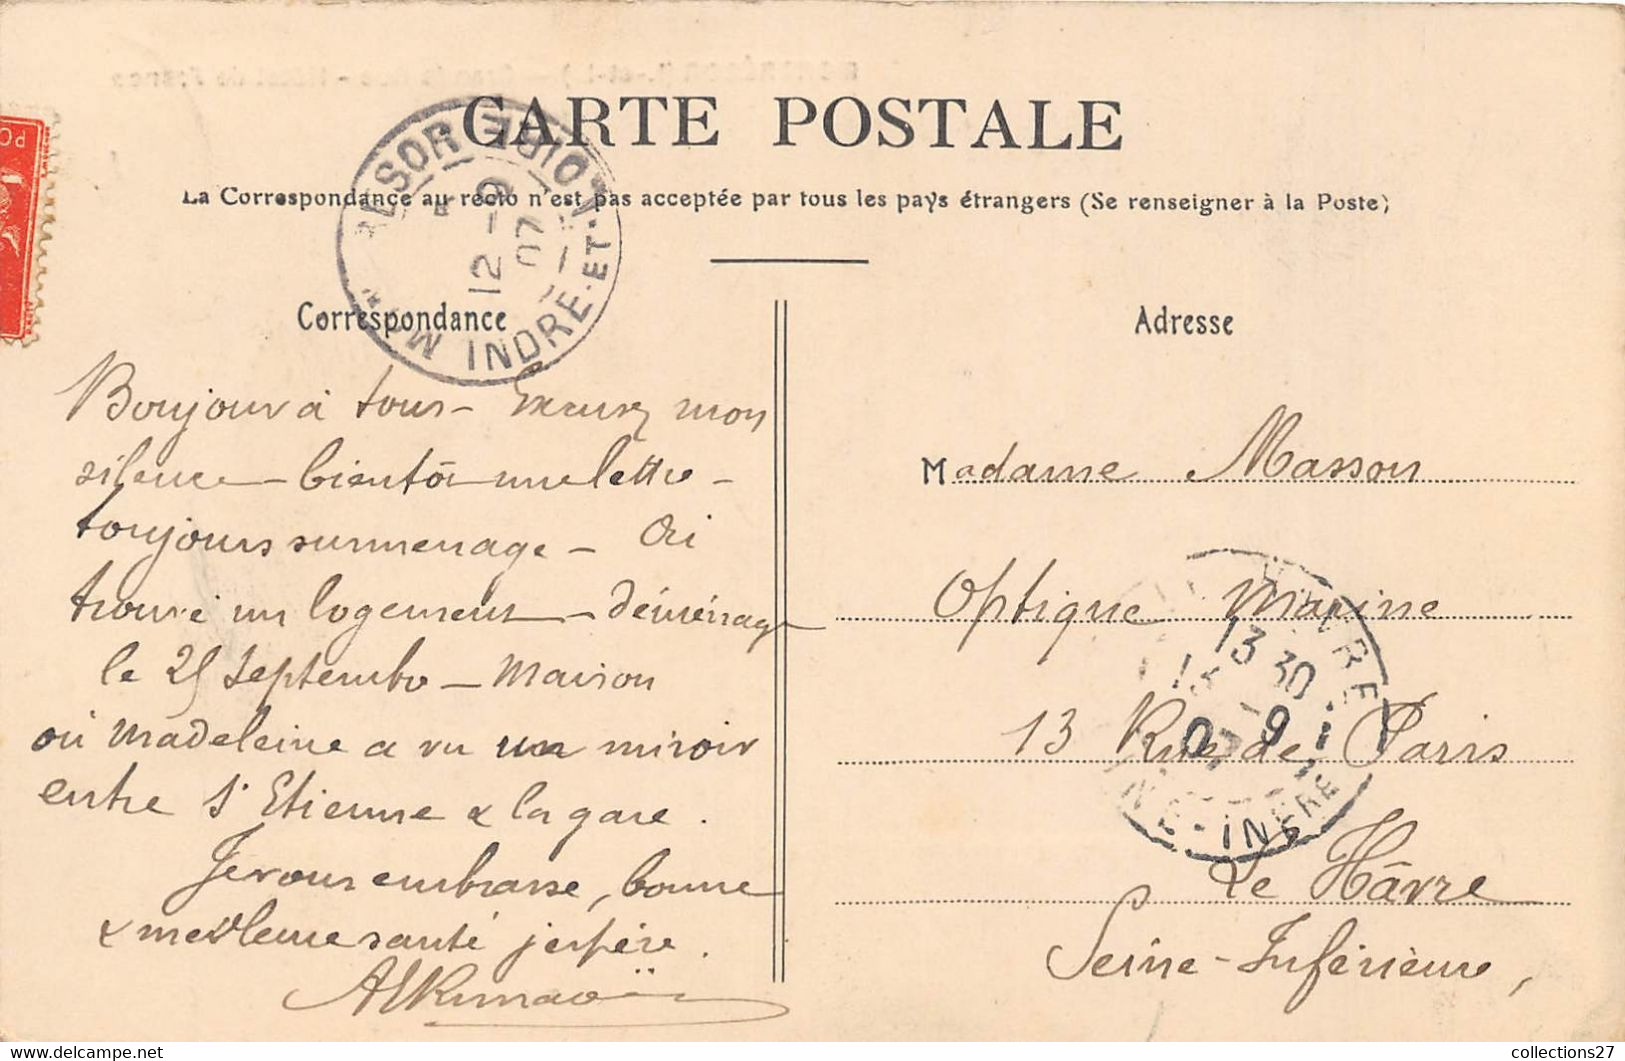 CARTE POSTALE
La Correspondance au recto n'est pas acceptée par tous les pays étrangers (Se renseigner à la Poste)
INDRE-ET-LOIRE
12 - 9
07
Correspondance
Bonjour à tous - Excusez mon
silence - bientôt une lettre -
toujours surmenage -
trouvé un logement - déménage
le 25 Septembre - Maison
où Madeleine a vu un miroir
entre St Etienne & la gare.
Je vous embrasse, bonne
& meilleure santé j'espère.
Adresse
Madame Masson
Optique Marine
13 Rue de Paris
Le Hâvre
Seine-Inférieure,
13 30
collections27